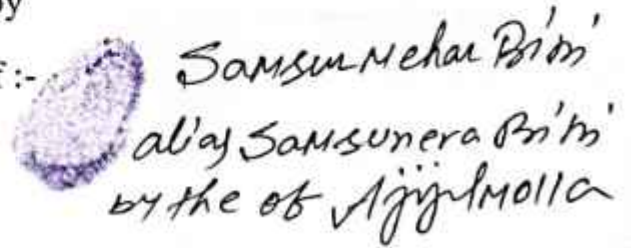 by
f :-
Samsur Nehar Bibi
alias Samsunera Bibi
by the of Ajijul Molla